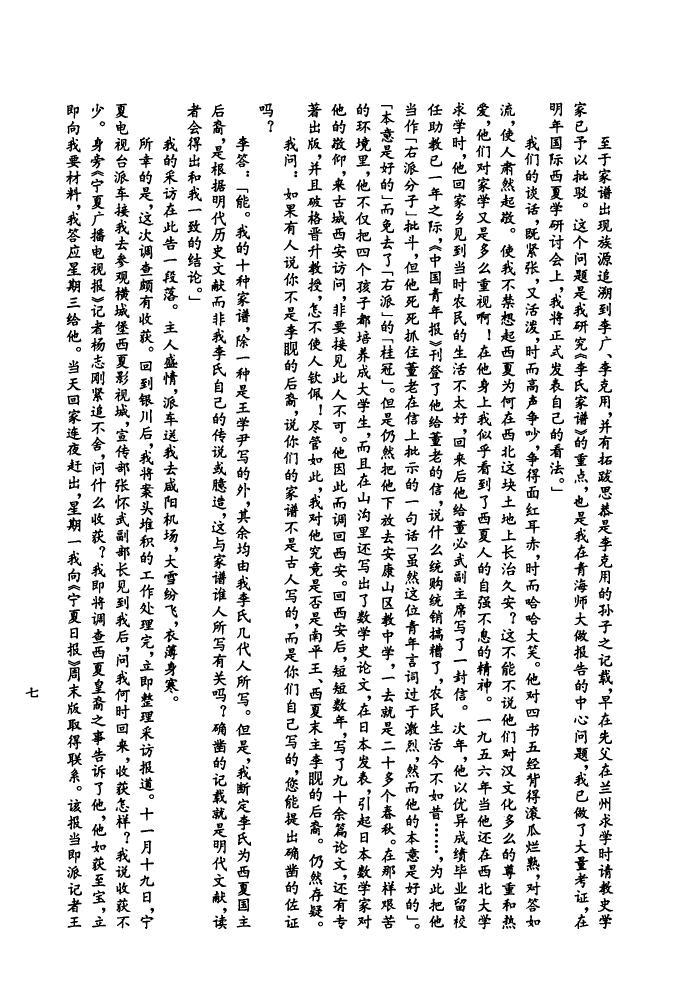 至于家谱出现族源追溯到李广、李克用，并有拓跋思恭是李克用的孙子之记载，早在先父在兰州求学时请教史学
家已予以批驳。这个问题是我研究《李氏家谱》的重点，也是我在青海师大做报告的中心问题，我已做了大量考证，在
明年国际西夏学研讨会上，我将正式发表自己的看法。」
我们的谈话，既紧张，又活泼，时而高声争吵，争得面红耳赤，时而哈哈大笑。他对四书五经背得滚瓜烂熟，对答如
流，使人肃然起敬。使我不禁想起西夏为何在西北这块土地上长治久安？这不能不说他们对汉文化多么的尊重和热
爱，他们对家学又是多么重视啊！在他身上我似乎看到了西夏人的自强不息的精神。一九五六年当他还在西北大学
求学时，他回家乡见到当时农民的生活不太好，回来后他给董必武副主席写了一封信。次年，他以优异成绩毕业留校
任助教已一年之际，《中国青年报》刊登了他给董老的信，说什么统购统销搞糟了，农民生活今不如昔……，为此把他
当作「右派分子」批斗，但他死死抓住董老在信上批示的一句话「虽然这位青年言词过于激烈，然而他的本意是好的」。
「本意是好的」而免去了「右派」的「桂冠」。但是仍然把他下放去安康山区教中学，一去就是二十多个春秋。在那样艰苦
的环境里，他不仅把四个孩子都培养成大学生，而且在山沟里还写出了数学史论文，在日本发表，引起日本数学家对
他的敬仰，来古城西安访问，非要接见此人不可。他因此而调回西安。回西安后，短短数年，写了九十余篇论文，还有专
著出版，并且破格晋升教授，怎不使人钦佩！尽管如此，我对他究竟是否是南平王、西夏末主李睍的后裔。仍然存疑。
我问：如果有人说你不是李睍的后裔，说你们的家谱不是古人写的，而是你们自己写的，您能提出确凿的佐证
吗？
李答：「能。我的十种家谱，除一种是王学尹写的外，其余均由我李氏几代人所写。但是，我断定李氏为西夏国主
后裔，是根据明代历史文献而非我李氏自己的传说或臆造，这与家谱谁人所写有关吗？确凿的记载就是明代文献，读
者会得出和我一致的结论。」
我的采访在此告一段落。主人盛情，派车送我去咸阳机场，大雪纷飞，衣薄身寒。
所幸的是，这次调查颇有收获。回到银川后，我将案头堆积的工作处理完，立即整理采访报道。十一月十九日，宁
夏电视台派车接我去参观横城堡西夏影视城，宣传部张怀武副部长见到我后，问我何时回来，收获怎样？我说收获不
少。身旁《宁夏广播电视报》记者杨志刚紧追不舍，问什么收获？我即将调查西夏皇裔之事告诉了他，他如获至宝，立
即向我要材料，我答应星期三给他。当天回家连夜赶出，星期一我向《宁夏日报》周末版取得联系。该报当即派记者王
七